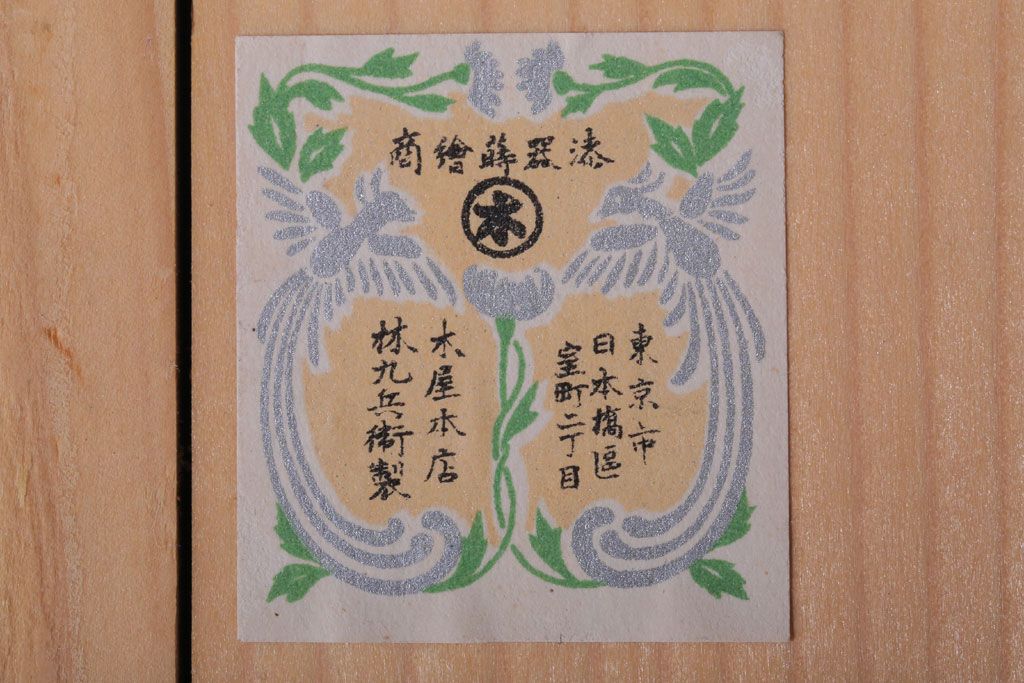 漆器蒔繪商
木
東京市
日本橋區
室町二丁目
木屋本店
林九兵衛製